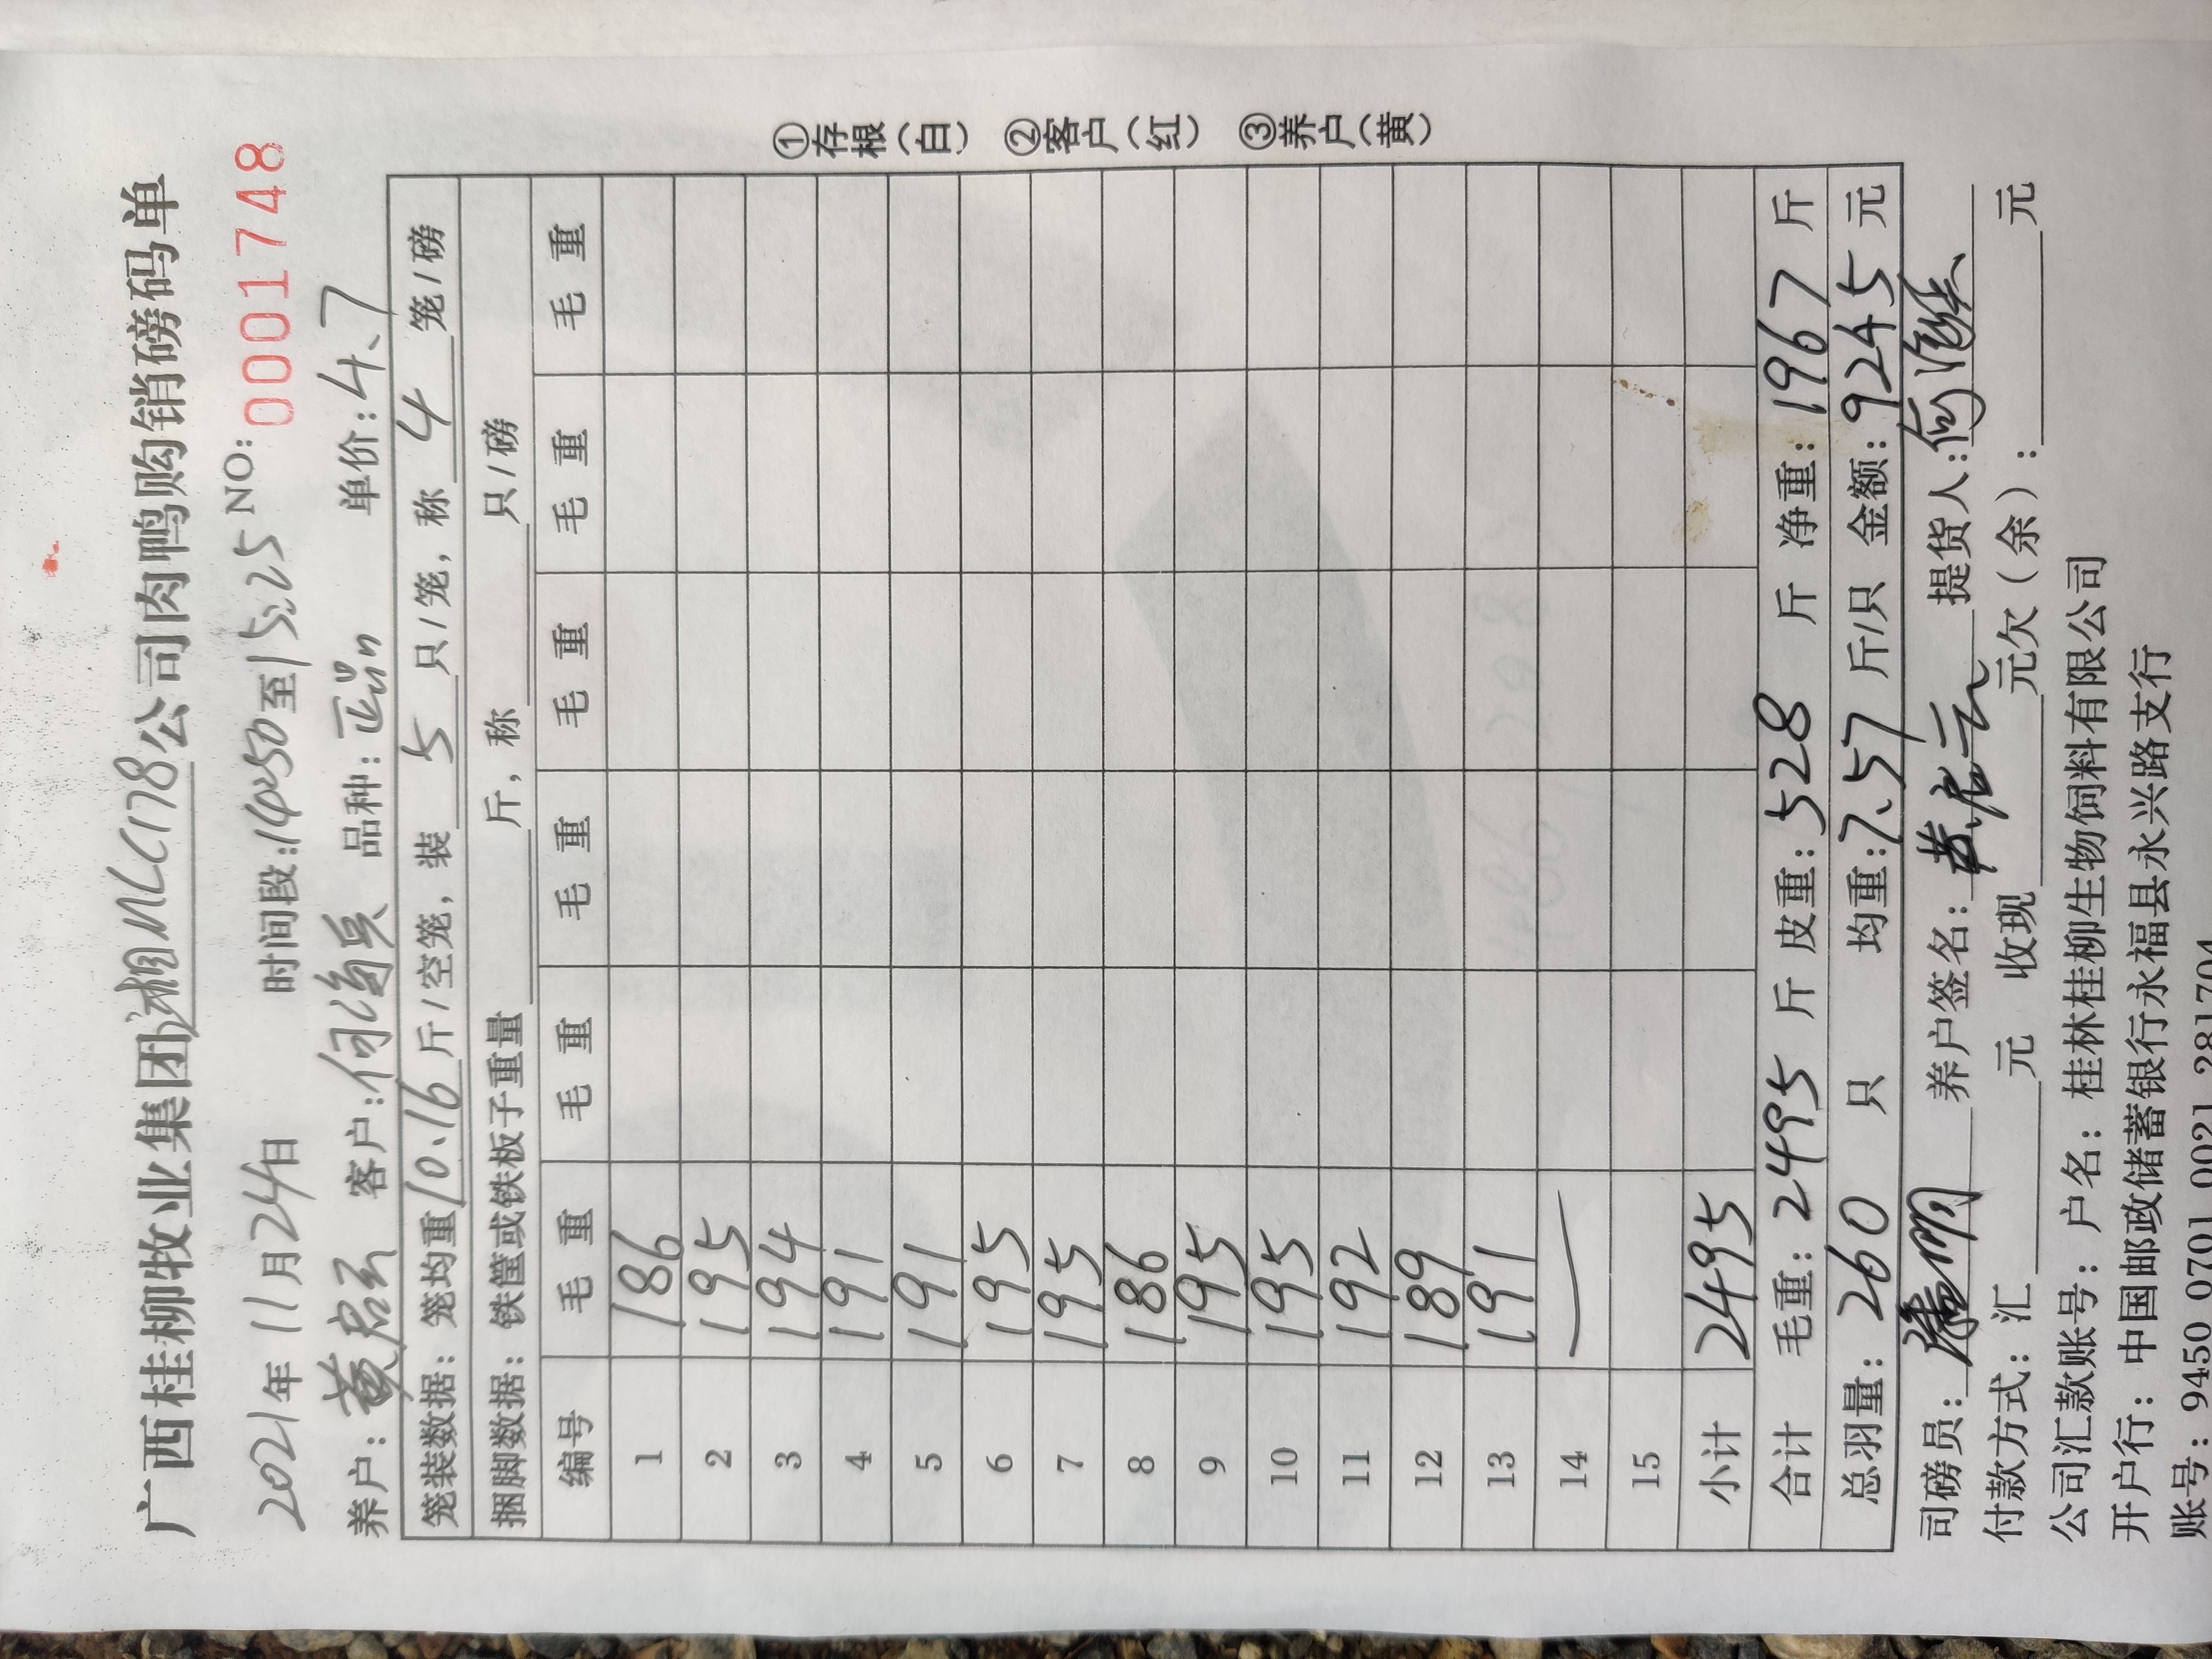 广西桂柳牧业集团湘MLC178公司肉鸭购销磅码单
2021年11月24日 时间段:14:50至15:25 NO: 0001748
养户: 黄启云 客户: 何海兵 品种: 正品 单价: 4.7
笼装数据: 笼均重 10.16 斤/空笼, 装 5 只/笼, 称 4 笼/磅
捆脚数据: 铁筐或铁板子重量 斤, 称 只/磅
编号 毛重 毛重 毛重 毛重 毛重 毛重
1 186
2 195
3 194
4 191
5 191
6 195
7 195
8 186
9 195
10 195
11 192
12 189
13 191
14 —
15
小计 2495
合计 毛重: 2495 斤 皮重: 528 斤 净重: 1967 斤
总羽量: 260 只 均重: 7.57 斤/只 金额: 9245 元
司磅员: 养户签名: 黄启云 提货人:
付款方式: 汇 元 收现 元欠(余): 元
公司汇款账号: 户名: 桂林桂柳生物饲料有限公司
开户行: 中国邮政储蓄银行永福县永兴路支行
账号: 9450 0701 0021 2817
①存根(白) ②客户(红) ③养户(黄)